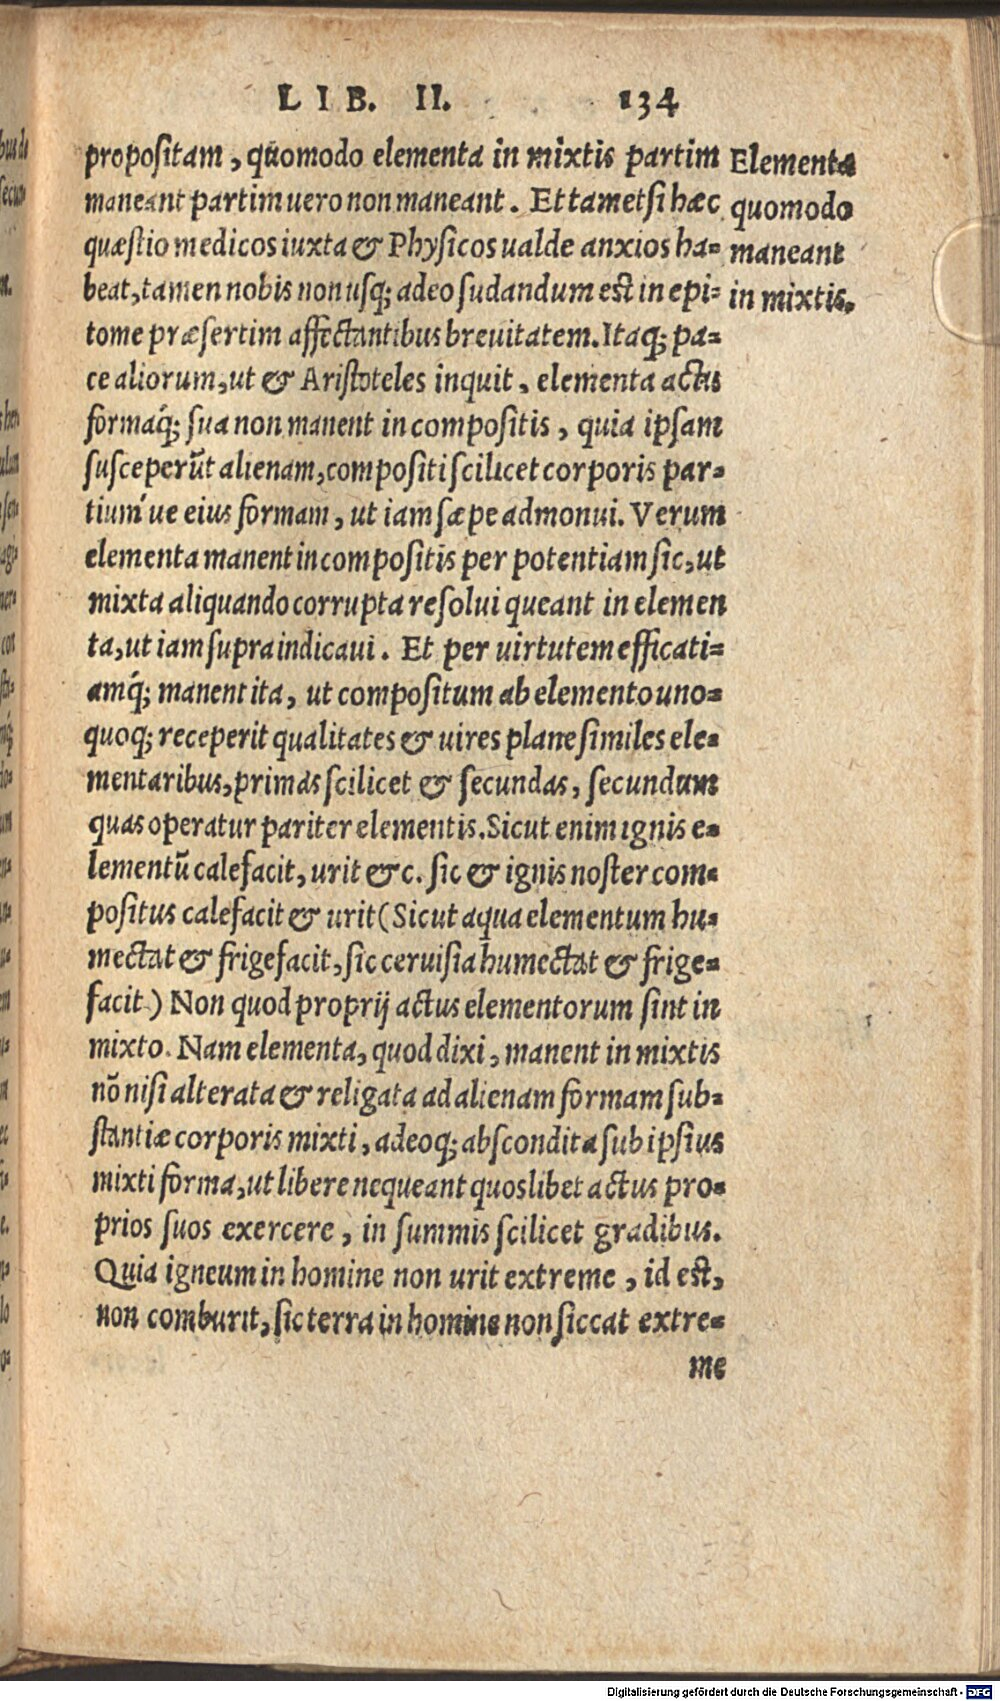 LIB. II. 134
propositam, quomodo elementa in mixtis partim
maneant partim uero non maneant. Et tametsi hæc
quæstio medicos iuxta & Physicos ualde anxios ha=
beat, tamen nobis non usq; adeo sudandum est in epi=
tome præsertim affectantibus breuitatem. Itaq; pa=
ce aliorum, ut & Aristoteles inquit, elementa actus
formaq́; sua non manent in compositis, quia ipsam
susceperūt alienam, compositi scilicet corporis par=
tium´ue eius formam, ut iam sæpe admonui. Verum
elementa manent in compositis per potentiam sic, ut
mixta aliquando corrupta resolui queant in elemen
ta, ut iam supra indicaui. Et per uirtutem efficati=
amq́; manent ita, ut compositum ab elemento uno=
quoq; receperit qualitates & uires plane similes ele=
mentaribus, primas scilicet & secundas, secundum
quas operatur pariter elementis. Sicut enim ignis e=
lementū calefacit, urit & c. sic & ignis noster com=
positus calefacit & urit (Sicut aqua elementum hu=
mectat & frigefacit, sic ceruisia humectat & frige=
facit.) Non quod proprij actus elementorum sint in
mixto. Nam elementa, quod dixi, manent in mixtis
nō nisi alterata & religata ad alienam formam sub=
stantiæ corporis mixti, adeoq; abscondita sub ipsius
mixti forma, ut libere nequeant quoslibet actus pro=
prios suos exercere, in summis scilicet gradibus.
Quia igneum in homine non urit extreme, id est,
non comburit, sic terra in homine non siccat extre=
me
Elementa
quomodo
maneant
in mixtis.
Digitalisierung gefördert durch die Deutsche Forschungsgemeinschaft - DFG